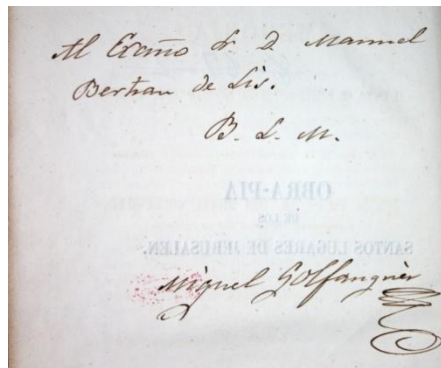 Al Excmo Sr. D. Manuel
Bertran de Lis.
B. L. M.
OBRA-PIA
DE LOS
SANTOS LUGARES DE JERUSALEN.
Miguel Golfanguèr